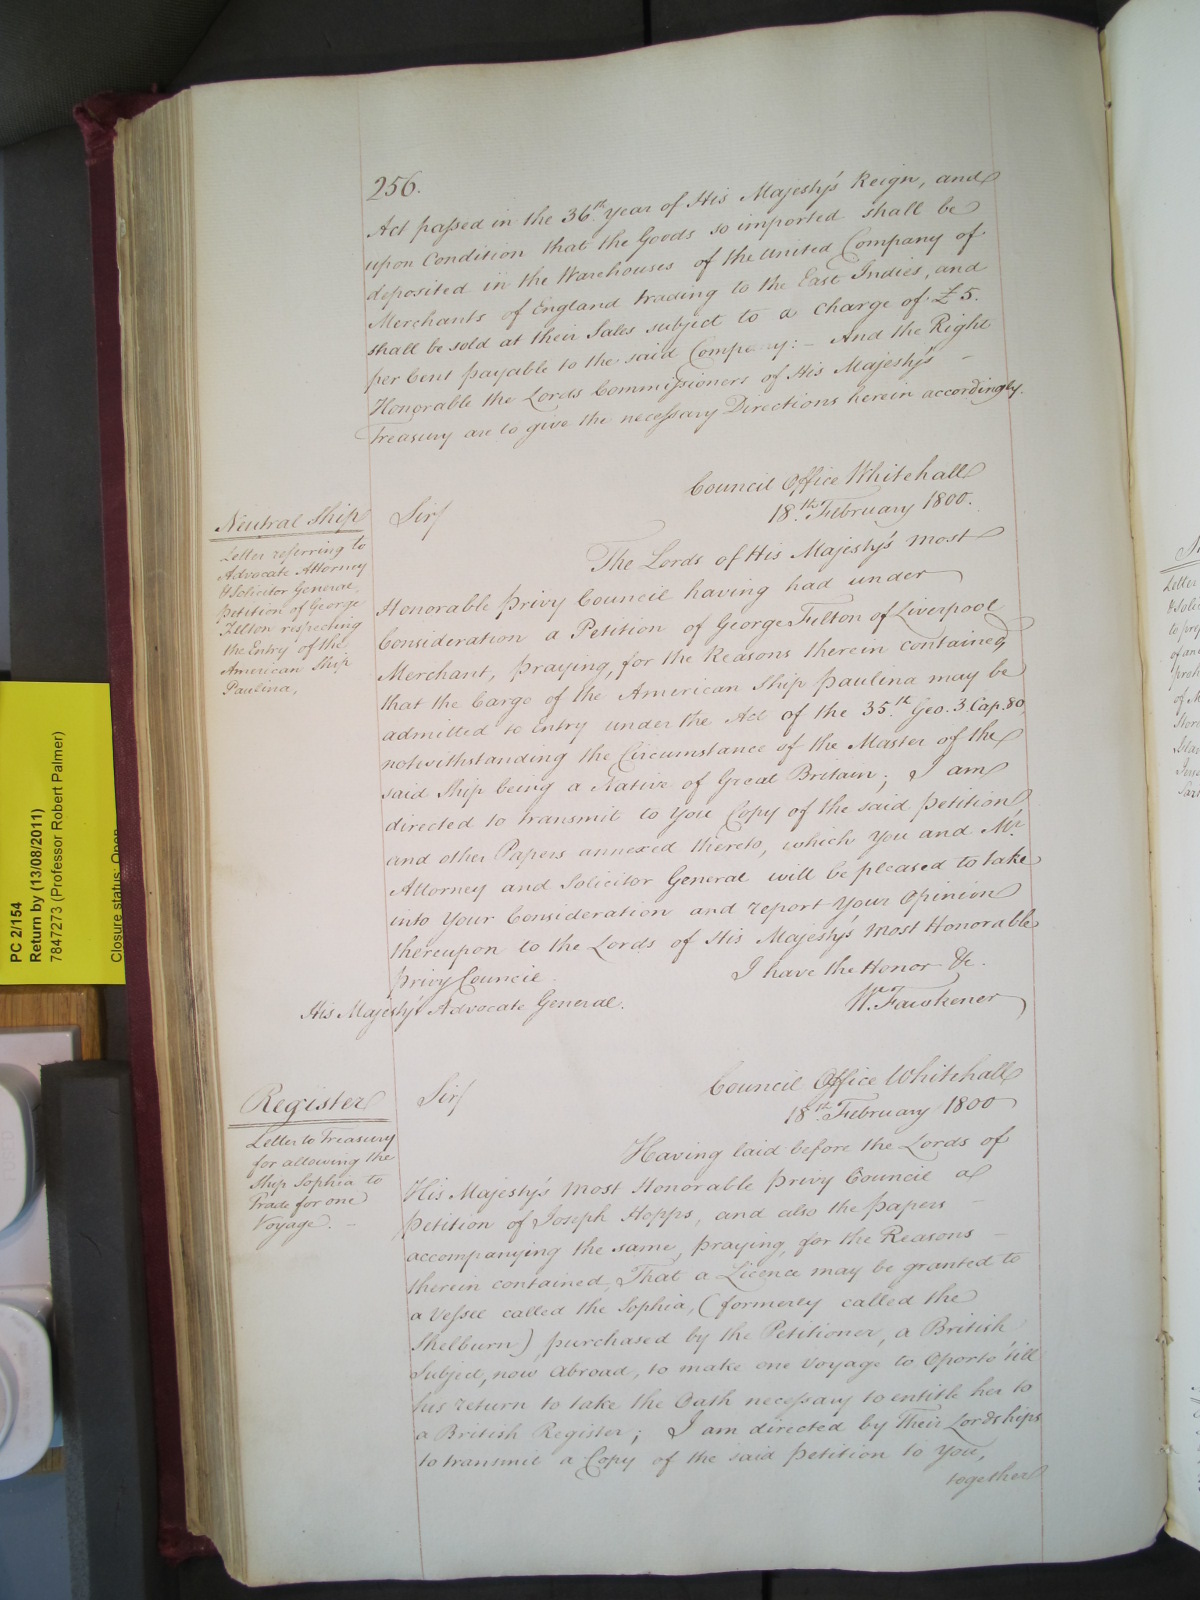 256.
Act passed in the 36th year of His Majesty's Reign, and
upon Condition that the Goods so imported shall be
deposited in the Warehouses of the United Company of
Merchants of England trading to the East Indies, and
shall be sold at their Sales subject to a Charge of £5.
per Cent payable to the said Company:- And the Right
Honorable the Lords Commissioners of His Majesty's -
Treasury are to give the necessary Directions herein accordingly.
Council Office Whitehall
18th February 1800.
Neutral Ship
Letter referring to
Advocate Attorney
& Solicitor General,
Petition of George
Felton respecting
the Entry of the
American Ship
Paulina,
Sir/
The Lords of His Majesty's most
Honorable Privy Council having had under
Consideration a Petition of George Felton of Liverpool
Merchant, praying, for the Reasons therein contained,
that the Cargo of the American Ship Paulina may be
admitted to Entry under the Act of the 35th Geo. 3. Cap. 80,
notwithstanding the Circumstance of the Master of the
said Ship being a Native of Great Britain; I am
directed to transmit to You Copy of the said Petition
and other Papers annexed thereto, which You and Mr
Attorney and Solicitor General will be pleased to take
into Your Consideration and report Your Opinion
thereupon to the Lords of His Majesty's most Honorable
Privy Council.
I have the Honor &c.
W. Fawkener
His Majesty's Advocate General.
Council Office Whitehall
18th February 1800
Register
Letter to Treasury
for allowing the
Ship Sophia to
Trade for one
Voyage. -
Sir/
Having laid before the Lords of
His Majesty's most Honorable Privy Council a
Petition of Joseph Hopps, and also the Papers -
accompanying the same, praying, for the Reasons -
therein contained, That a Licence may be granted to
a Vessel called the Sophia, (formerly called the
Shelburn) purchased by the Petitioner, a British
Subject, now abroad, to make one Voyage to Oporto 'till
his return to take the Oath necessary to entitle her to
a British Register; I am directed by Their Lordships
to transmit a Copy of the said Petition to You,
together
PC 2/154
Return by (13/08/2011)
7847273 (Professor Robert Palmer)
Closure status: Open